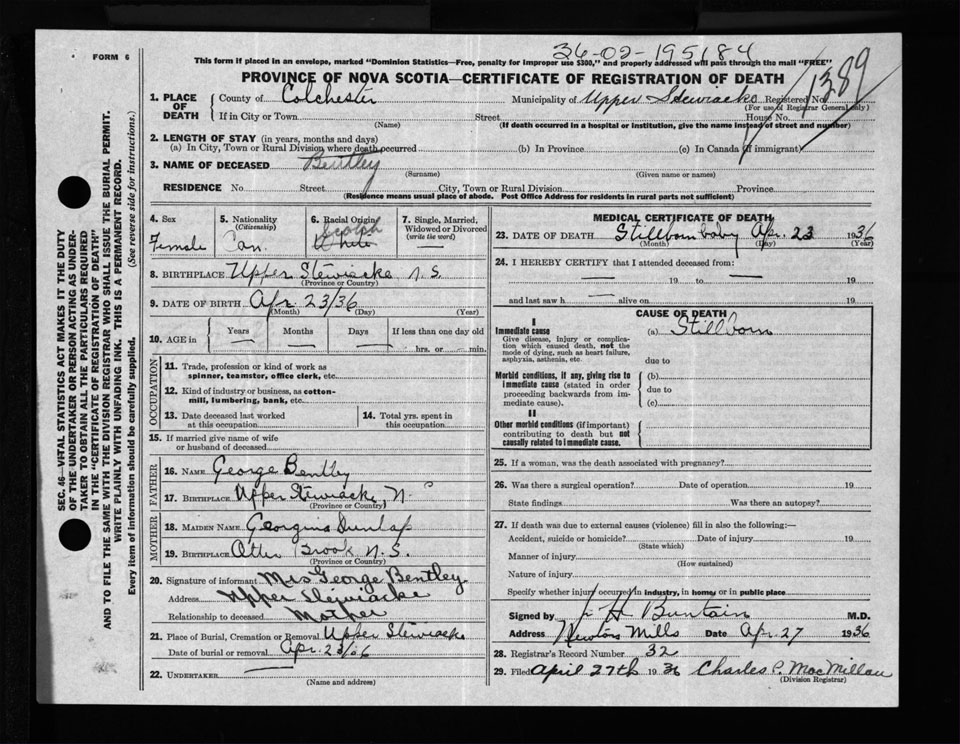 36-02-195184
FORM 6
This form if placed in an envelope, marked "Dominion Statistics—Free, penalty for improper use $300," and properly addressed will pass through the mail "FREE"
PROVINCE OF NOVA SCOTIA—CERTIFICATE OF REGISTRATION OF DEATH
1389
1. PLACE OF DEATH County of Colchester Municipality of Upper Stewiacke Registered No.
(For use of Registrar General only)
If in City or Town Street House No.
(Name) (If death occurred in a hospital or institution, give the name instead of street and number)
2. LENGTH OF STAY (in years, months and days)
(a) In City, Town or Rural Division where death occurred (b) In Province (c) In Canada (if immigrant)
3. NAME OF DECEASED Bentley
(Surname) (Given name or names)
RESIDENCE No. Street City, Town or Rural Division Province
(Residence means usual place of abode. Post Office Address for residents in rural parts not sufficient)
4. Sex
Female
5. Nationality
(Citizenship)
Can.
6. Racial Origin
Scotch
White
7. Single, Married, Widowed or Divorced
(write the word)
—
8. BIRTHPLACE Upper Stewiacke N.S.
(Province or Country)
9. DATE OF BIRTH Apr. 23/36
(Month) (Day) (Year)
10. AGE in Years Months Days If less than one day old
— — — — hrs. or — min.
OCCUPATION
11. Trade, profession or kind of work as
spinner, teamster, office clerk, etc.
12. Kind of industry or business, as cotton-
mill, lumbering, bank, etc.
13. Date deceased last worked
at this occupation
14. Total yrs. spent in
this occupation
15. If married give name of wife
or husband of deceased
FATHER
16. NAME George Bentley
17. BIRTHPLACE Upper Stewiacke, N.
(Province or Country)
MOTHER
18. MAIDEN NAME Georgina Dunlap
19. BIRTHPLACE Otter Brook N.S.
(Province or Country)
20. Signature of informant Mrs George Bentley
Address Upper Stewiacke
Relationship to deceased Mother
21. Place of Burial, Cremation or Removal Upper Stewiacke
Date of burial or removal Apr. 23/36
22. UNDERTAKER —
(Name and address)
MEDICAL CERTIFICATE OF DEATH
23. DATE OF DEATH Stillborn baby Apr. 23 1936
(Month) (Day) (Year)
24. I HEREBY CERTIFY that I attended deceased from:
— 19 to — 19
and last saw h — alive on 19
CAUSE OF DEATH
I
Immediate cause (a) Stillborn
Give disease, injury or complica-
tion which caused death, not the
mode of dying, such as heart failure,
asphyxia, asthenia, etc.
due to
Morbid conditions, if any, giving rise to
immediate cause (stated in order
proceeding backwards from im-
mediate cause).
(b)
due to
(c)
II
Other morbid conditions (if important)
contributing to death but not
causally related to immediate cause.
25. If a woman, was the death associated with pregnancy?
26. Was there a surgical operation? Date of operation 19
State findings Was there an autopsy?
27. If death was due to external causes (violence) fill in also the following:—
Accident, suicide or homicide? Date of injury 19
(State which)
Manner of injury
(How sustained)
Nature of injury
Specify whether injury occurred in industry, in home, or in public place
Signed by H Buntain M.D.
Address Newtons Mills Date Apr. 27 1936
28. Registrar's Record Number 32
29. Filed April 27th 1936 Charles P. MacMillan
(Division Registrar)
SEC. 46—VITAL STATISTICS ACT MAKES IT THE DUTY
OF THE UNDERTAKER OR PERSON ACTING AS UNDER-
TAKER TO OBTAIN ALL THE PARTICULARS REQUIRED
IN THE "CERTIFICATE OF REGISTRATION OF DEATH"
AND TO FILE THE SAME WITH THE DIVISION REGISTRAR WHO SHALL ISSUE THE BURIAL PERMIT.
WRITE PLAINLY WITH UNFADING INK. THIS IS A PERMANENT RECORD.
Every item of information should be carefully supplied. (See reverse side for instructions.)